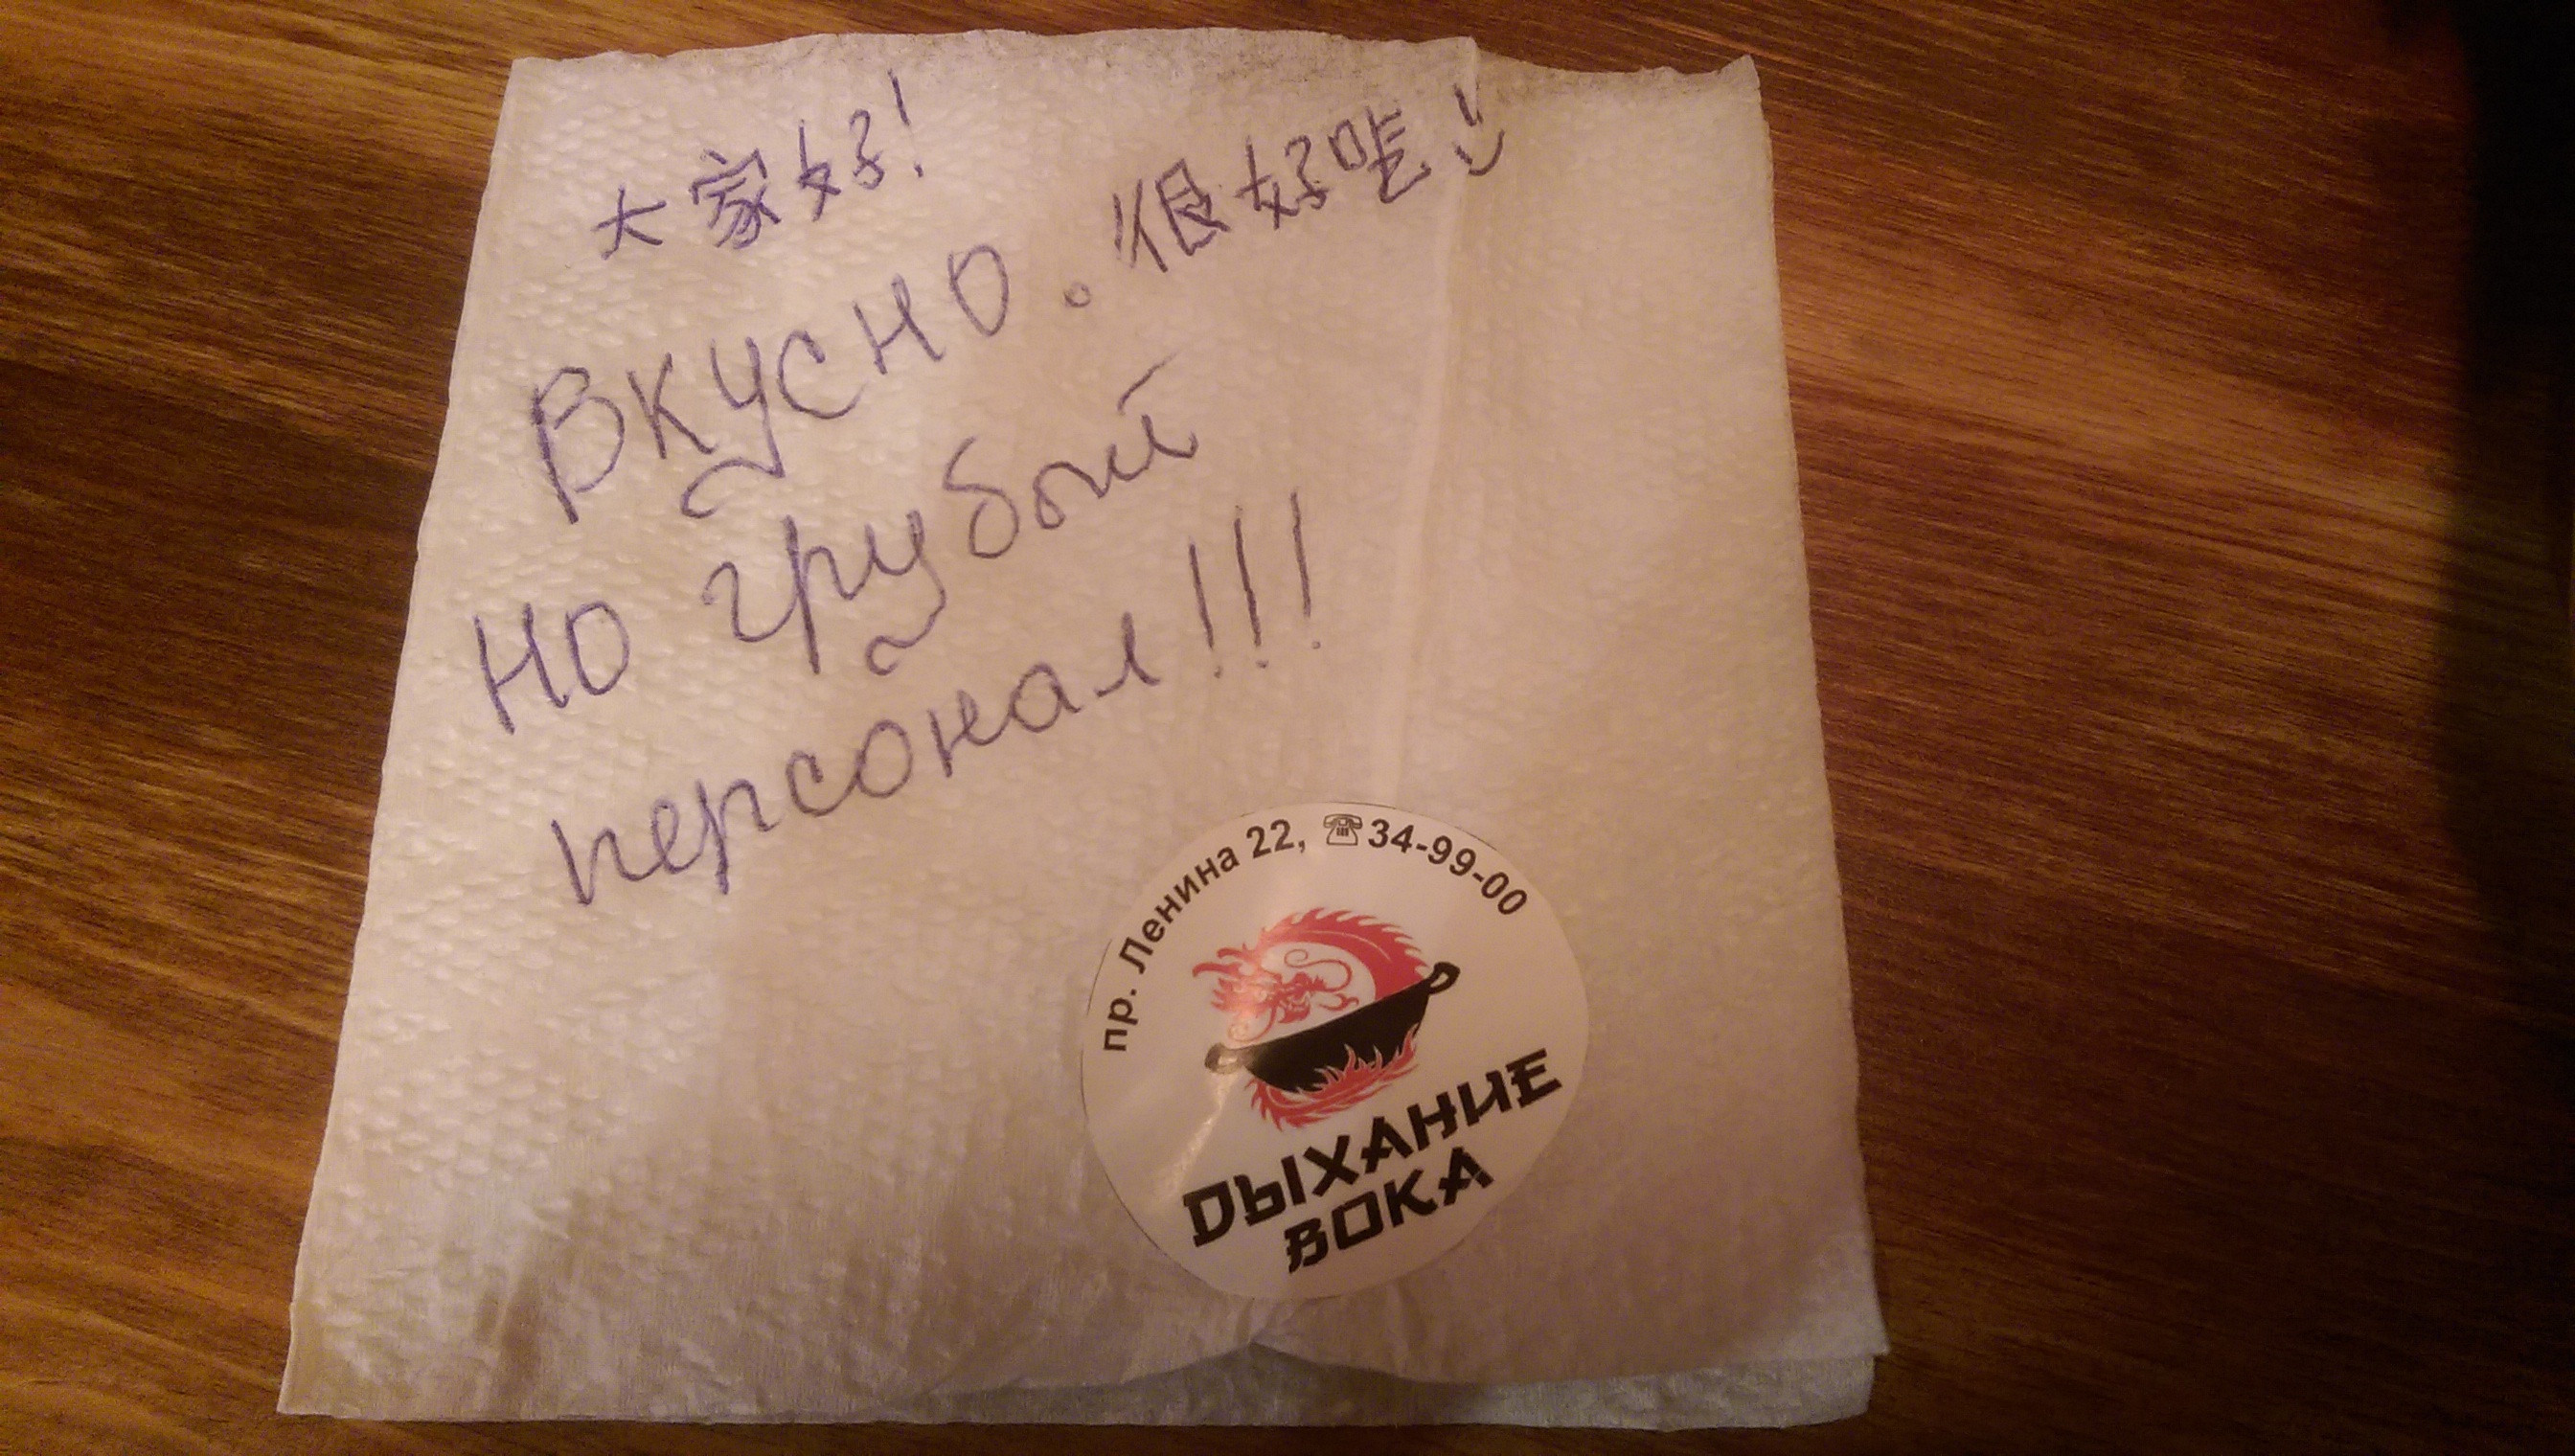 大家好!
Вкусно。很好吃 :)
но грубый
персонал!!!
пр. Ленина 22, ☎34-99-00
ДЫХАНИЕ
ВОКА